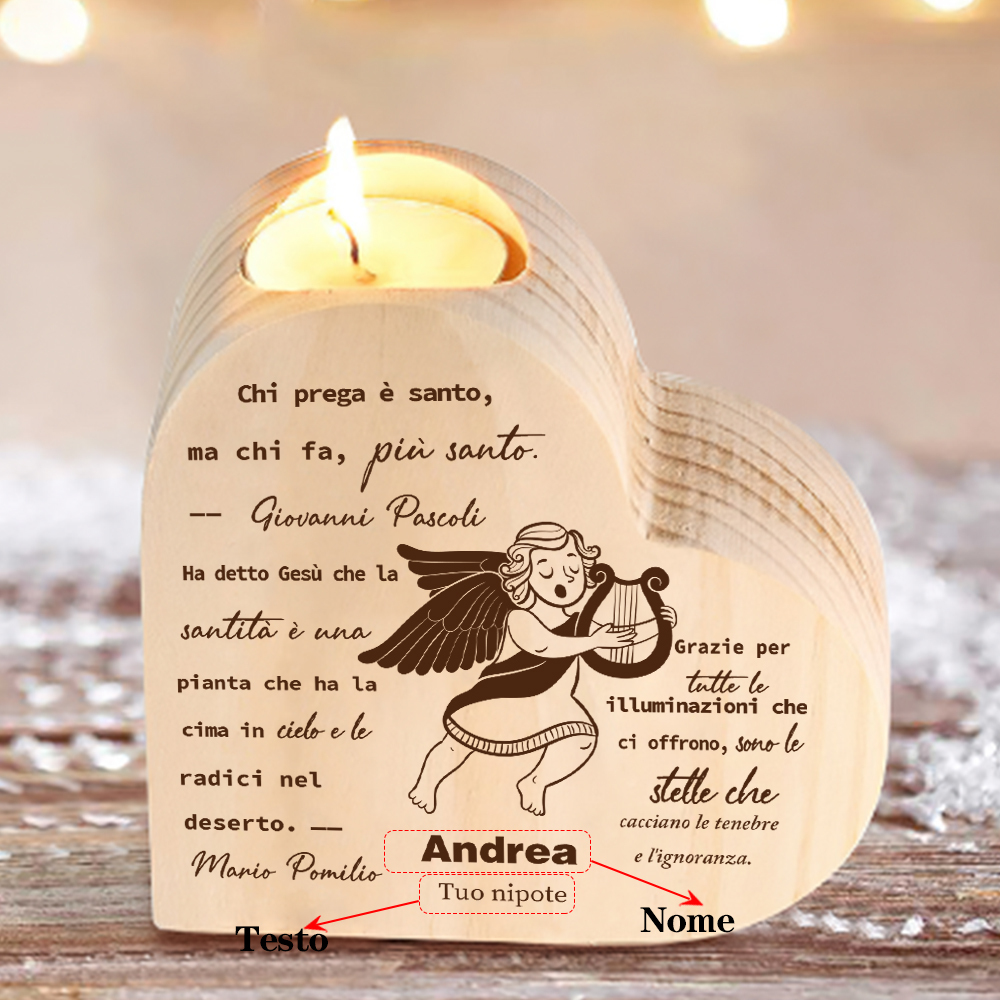 Chi prega è santo,
ma chi fa, più santo.
—— Giovanni Pascoli
Ha detto Gesù che la
santità è una
pianta che ha la
cima in cielo e le
radici nel
deserto. ——
Mario Pomilio
Grazie per
tutte le
illuminazioni che
ci offrono, sono le
stelle che
cacciano le tenebre
e l'ignoranza.
Andrea
Tuo nipote
Testo
Nome